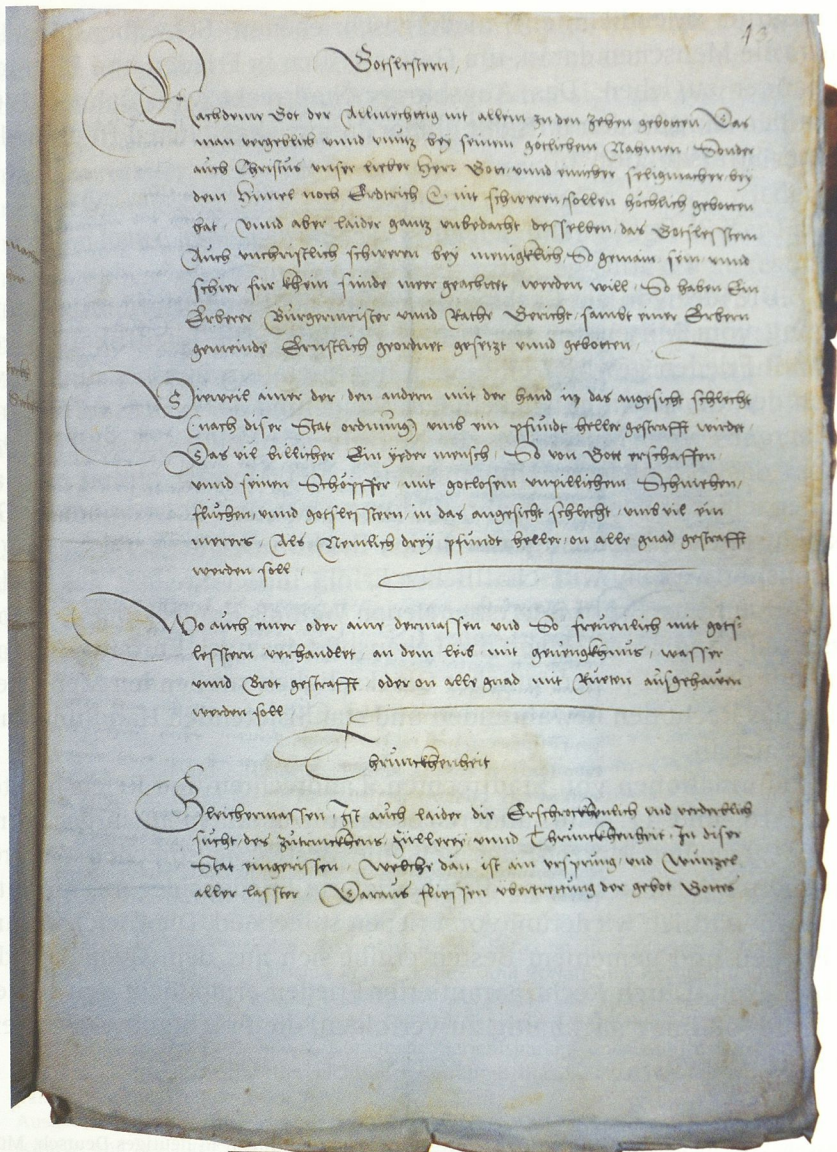 43
Gotslestern,
Nachdeme Got der Allmechtig mit allem zu den Zehen gebotten Das
man vergeblich vnnd vnnutz bey seinem götlichem Nahmen Sonder
auch Christus vnser lieber Herr Gott vnnd einicher seligmacher bey
dem Himel noch Erdtrich nit schweren sollen höchlich gebotten
hat, vnnd aber laider gantz vnbedacht desselben das Gotslesstern
Auch vnchristlich schweren bey menigklich So gemain sein vnnd
schier für khein sünde meer geachttet werden will, So haben Ein
Erberer Bürgermeister vnnd Rathe Gericht sambt einer Erbern
gemeinde Ernstlich geordnet gesetzt vnnd gebotten,
Dieweil ainer der den andern mit der hand in das angesicht schlecht
(nach diser Stat ordnung) vmb ein pfundt heller gestrafft wirdet,
Das vil billicher Ein yeder mensch, So von Gott erschaffen,
vnnd seinen Schöpffer, mit gotlosem vnpillichem Schmehen,
fluchen, vnnd gotslesstern, in das angesicht schlecht, vmb vil ein
merers, Als Nemlich drey pfundt heller, on alle gnad gestrafft
werden soll
Wo auch einer oder aine dermassen vnd So freuenlich mit gots-
lesstern verhandlet an dem leib mit geuengkhnus, wasser
vnnd Brot gestrafft oder on alle gnad mit Rueten ausgehawen
werden soll
Thrunckhenheit
Gleichermassen, Ist auch laider die Erschrockhenlich vnd verderblich
sucht, des zutrinckhens, füllerey vnnd Thrunckhenheit, In diser
Stat eingerissen, Welche dan ist ain vrsprung, vnd Wurtzel
aller lasster Daraus fliessen vbertrettung der gebot Gottes